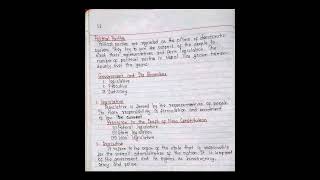 Political Parties
Political parties are regarded as the pillars of democratic
system. They try to win the support of the people to
elect their representatives and form legislature. The
number of political parties in Nepal has grown
over the years.
Government and Its Branches
1. Legislative
2. Executive
3. Judiciary
1. Legislative
Legislative is formed by the representatives of people.
Its main responsibility is formulation and amendment
of law
According to the of New Constitution
(i) Federal legislature
(ii) State legislature
(iii) Local legislature
2. Executive
It refers to the organ of the state that is responsible
for the overall administration of the nation. It is
by the government and its organs as bureaucracy,
Army and police.